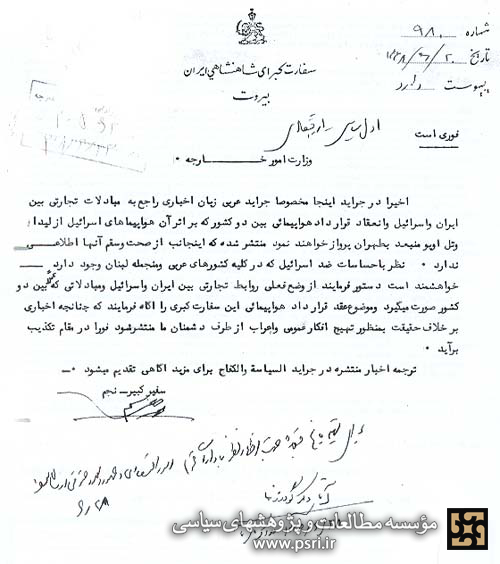 شماره ۹۸۰
تاریخ ۱۳۳۸/۶/۲۰
پیوست دارد
سفارت کبرای شاهنشاهی ایران
بیروت
فوری است
وزارت امور خارجه ۰
اخیرا در جراید اینجا مخصوصا جراید عربی زبان اخباری راجع به مبادلات تجارتی بین
ایران واسرائیل وانعقاد قرار داد هواپیمائی بین دو کشور که بر اثر آن هواپیماهای اسرائیل از لیدا
وتل اویو منبعد بطهران پرواز خواهند نمود منتشر شده که اینجانب از صحت وسقم آنها اطلاعی
ندارد ۰ نظر باحساسات ضد اسرائیل که در کلیه کشورهای عربی ومنجمله لبنان وجود دارد
خواهشمند است دستور فرمایند از وضع فعلی روابط تجارتی بین ایران واسرائیل ومبادلاتی که بین دو
کشور صورت میگیرد وموضوع عقد قرار داد هواپیمائی این سفارت کبری را آگاه فرمایند که چنانچه اخباری
بر خلاف حقیقت بمنظور تهییج افکار عمومی واعراب از طرف دشمنان ما منتشر شود فورا در مقام تکذیب
برآید ۰
ترجمه اخبار منتشره در جراید السیاسة والکفاح برای مزید آگاهی تقدیم میشود ۰
سفیر کبیر - نجم
مؤسسه مطالعات و پژوهشهای سیاسی
www.psri.ir